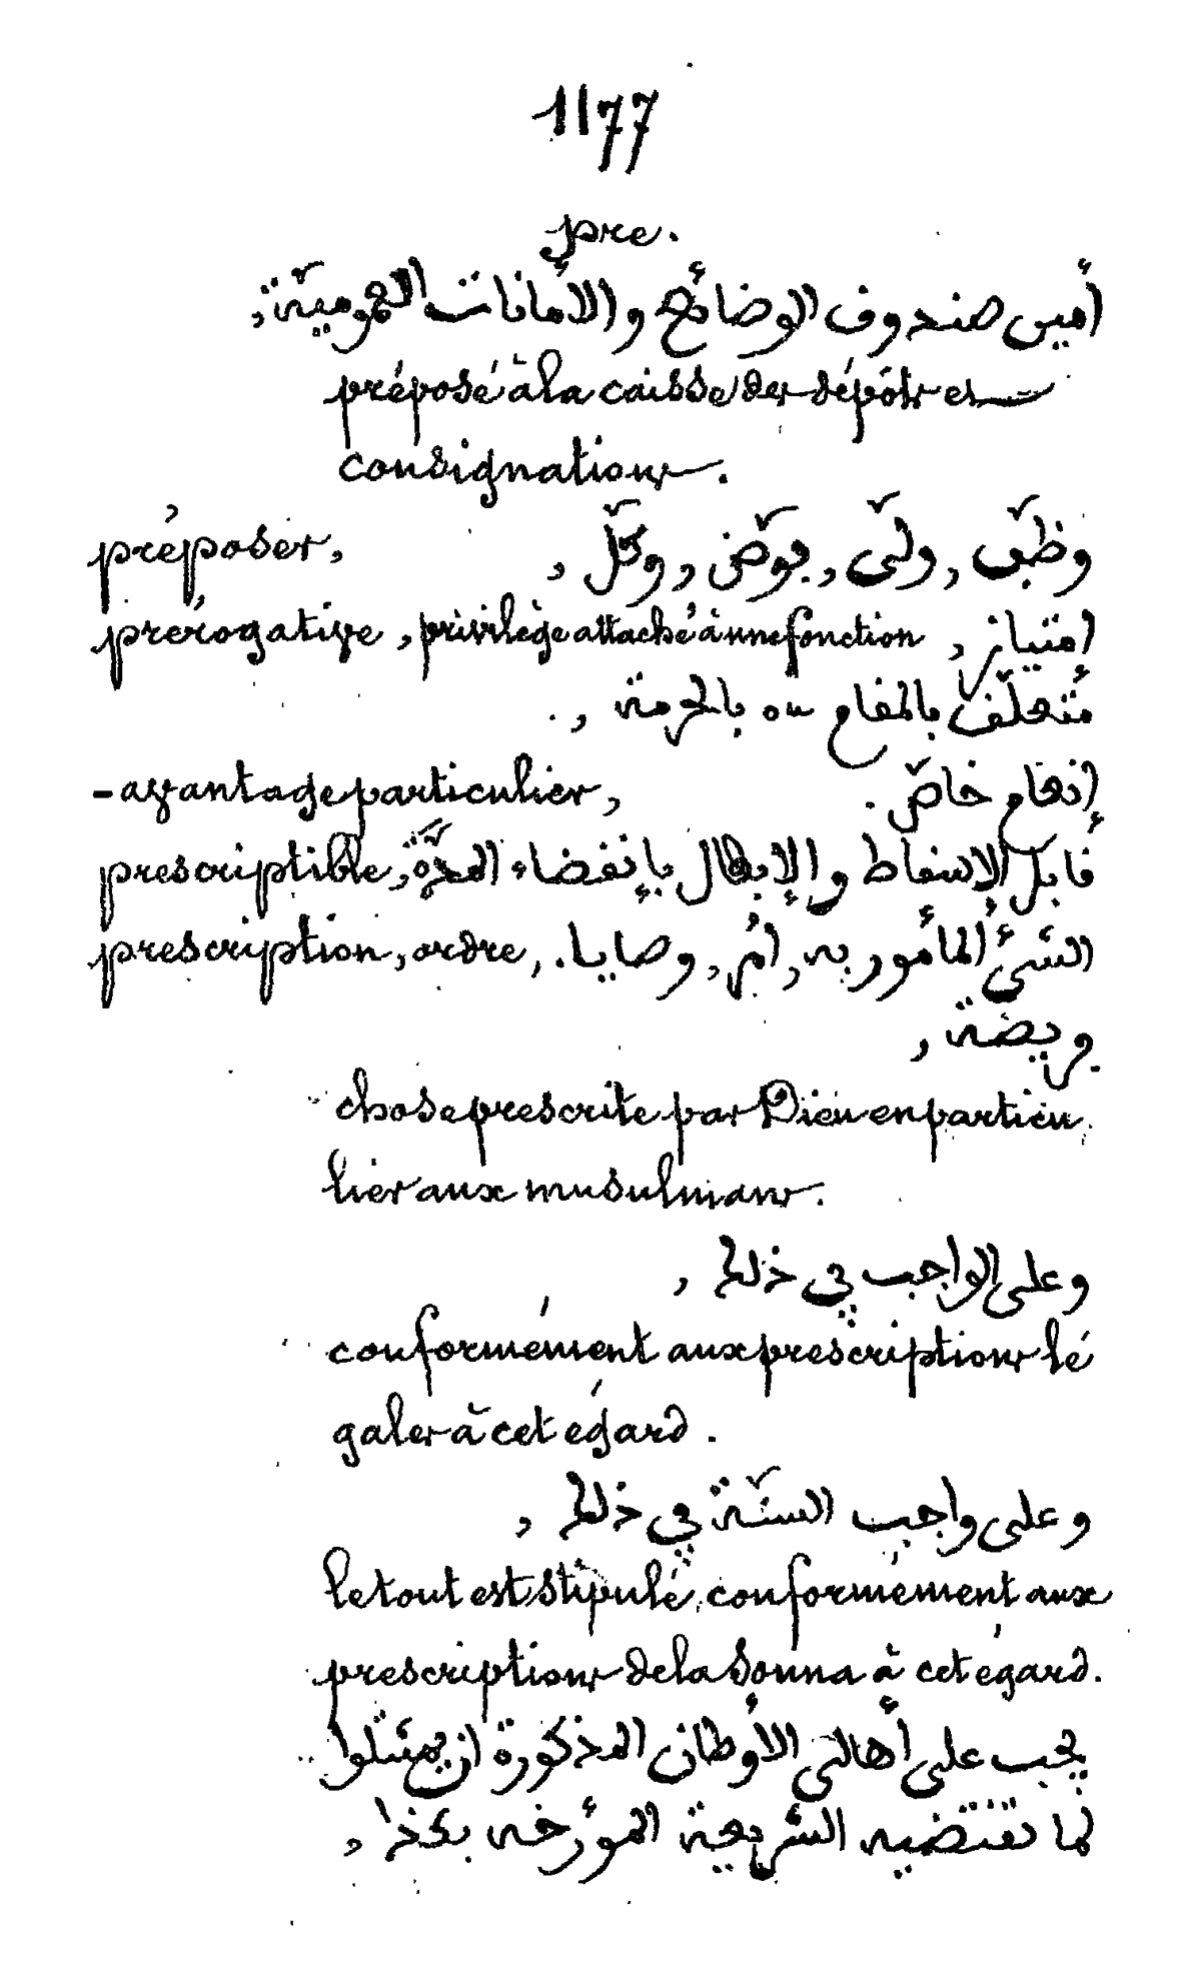 1177
pre.
أمين صندوف الوضائع والأمانات العموميّة,
préposé à la caisse des dépôts et
consignations.
préposer, وظّف, ولّى, فوّض, وكّل,
prérogative, privilège attaché à une fonction, إمتياز
متعلّف بالمفام ou بالحرمة,
- avantage particulier, إنعام خاصّ.
prescriptible, فابل الإسفاط والإبطال بإنفضاء المدّة,
prescription, ordre, الشئ المأمور به, امر, وصايا.
فريضة,
chose prescrite par Dieu en particu
lier aux musulmans.
وعلى الواجب في ذلك,
conformément aux prescriptions lé
gales à cet égard.
وعلى واجب السنّة في ذلك,
le tout est stipulé conformément aux
prescriptions de la Sonna à cet égard.
يجب على أهالى الأوطان المذكورة ان يمتثلوا
لما تفتضيه الشريعة المؤرخه بكذا,